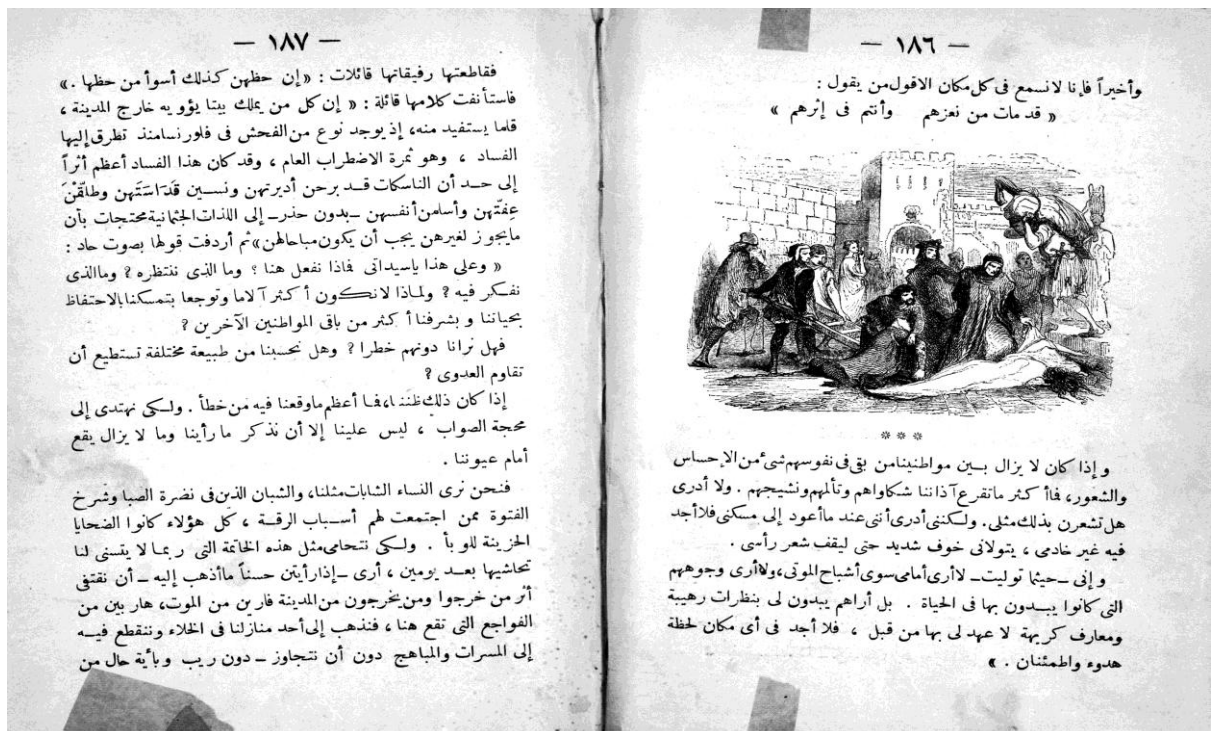 — ١٨٦ —
وأخيراً فإنا لانسمع فى كل مكان الاقول من يقول :
« قد مات من نعزهم وأنتم فى إثرهم »
* * *
و إذا كان لا يزال بــين مواطنينا من بقى فى نفوسهم شىء من الإحساس
والشعور ، فما أكثر ماتقرع آذاننا شكاواهم وتألمهم ونشيجهم . ولا أدرى
هل تشعرن بذلك مثلى . ولــكننى أدرى أننى عند ماأعود إلى مسكنى فلا أجد
فيه غير خادمى ، يتولانى خوف شديد حتى ليقف شعر رأسى .
و إنى ــ حيثما توليت ــ لا أرى أمامى سوى أشباح الموتى ، ولا أرى وجوههم
التى كانوا يبــدون بها فى الحياة . بل أراهم يبدون لى بنظرات رهيبة
ومعارف كريهة لا عهد لى بها من قبل ، فلا أجد فى أى مكان لحظة
هدوء واطمئنان . »
— ١٨٧ —
فقاطعتها رفيقاتها قائلات : « إن حظهن كذلك أسوأ من حظها . »
فاستأنفت كلامها قائلة : « إن كل من يملك بيتا يؤويه خارج المدينة ،
قلما يستفيد منه ، إذ يوجد نوع من الفحش فى فلورنسا منذ تطرق إليها
الفساد ، وهو ثمرة الاضطراب العام ، وقد كان هذا الفساد أعظم أثراً
إلى حــد أن الناسكات قــد برحن أديرتهن ونســين قَدَاسَتَهن وطلقْنَ
عِفتَهن وأسلمن أنفسهن ــ بدون حذر ــ إلى اللذات الجثمانية محتجات بأن
مايجوز لغيرهن يجب أن يكون مباحا لهن » ثم أردفت قولها بصوت حاد :
« وعلى هذا ياسيداتى فماذا نفعل هنا ؟ وما الذى ننتظره ؟ وما الذى
نفــكر فيه ؟ ولمــاذا لا نــكون أكثر آلاما وتوجعا بتمسكنا بالاحتفاظ
بحياتنا و بشرفنا أكثر من باقى المواطنين الآخرين ؟
فهل ترانا دونهم خطرا ؟ وهل تحسبنا من طبيعة مختلفة تستطيع أن
تقاوم العدوى ؟
إذا كان ذلك ظننا ، فمــا أعظم ماوقعنا فيه من خطأ . ولــكى نهتدى إلى
محجة الصواب ، ليس علينا إلا أن نذكر مارأينا وما لا يزال يقع
أمام عيوننا .
فنحن نرى النساء الشابات مثلنا ، والشبان الذين فى نضرة الصبا وشرخ
الفتوة ممن اجتمعت لهم أســباب الرقــة ، كل هؤلاء كانوا الضحايا
الحزينة للوبأ . ولــكى نتحامى مثل هذه الخاتمة التى ربمــا لا يتسنى لنا
تحاشيها بعــد يومين ، أرى ــ إذا رأيتن حسناً ماأذهب إليه ــ أن نقتفى
أثر من خرجوا ومن يخرجون من المدينة فارين من الموت ، هاربين من
الفواجع التى تقع هنا ، فنذهب إلى أحد منازلنا فى الخلاء وننقطع فيــه
إلى المسرات والمباهج دون أن نتجاوز ــ دون ريب وبأية حال من